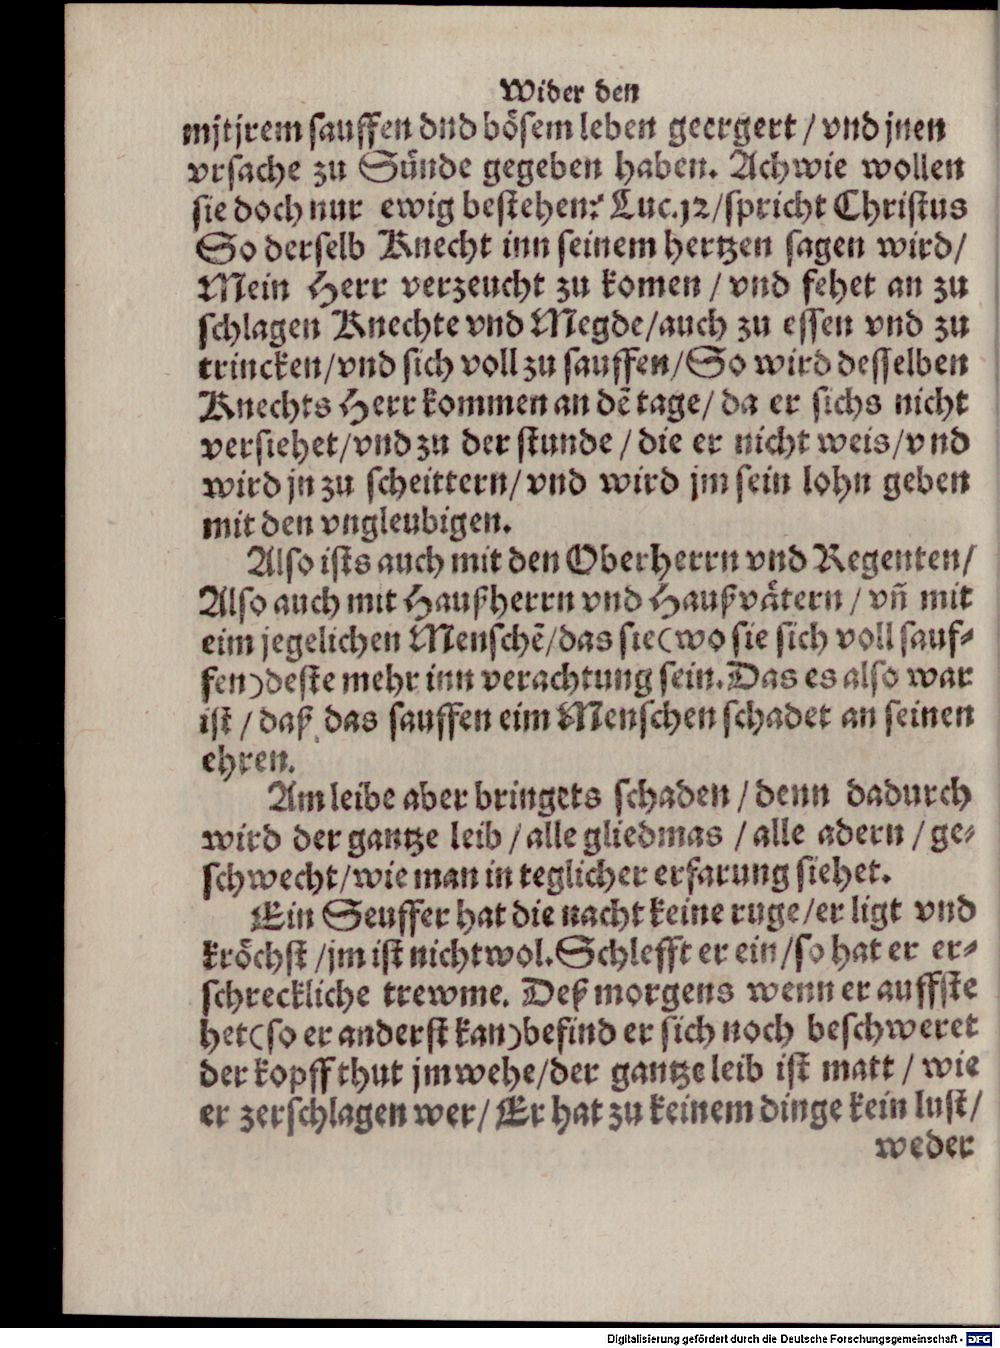 Wider den
mjtjrem sauffen dnd bösem leben geergert / vnd jnen
vrsache zu Sünde gegeben haben. Ach wie wollen
sie doch nur ewig bestehen? Luc. 12 / spricht Christus
So derselb Knecht inn seinem hertzen sagen wird /
Mein Herr verzeucht zu komen / vnd fehet an zu
schlagen Knechte vnd Megde / auch zu essen vnd zu
trincken / vnd sich voll zu sauffen / So wird desselben
Knechts Herr kommen an dē tage / da er sichs nicht
versiehet / vnd zu der stunde / die er nicht weis / vnd
wird jn zu scheittern / vnd wird jm sein lohn geben
mit den vngleubigen.
Also ists auch mit den Oberherrn vnd Regenten /
Also auch mit Haußherrn vnd Haußvätern / vn̄ mit
eim jegelichen Menschē / das sie (wo sie sich voll sauf-
fen) deste mehr inn verachtung sein. Das es also war
ist / daß das sauffen eim Menschen schadet an seinen
ehren.
Am leibe aber bringets schaden / denn dadurch
wird der gantze leib / alle gliedmas / alle adern / ge-
schwecht / wie man in teglicher erfarung siehet.
Ein Seuffer hat die nacht keine ruge / er ligt vnd
kröchst / jm ist nicht wol. Schlefft er ein / so hat er er-
schreckliche trewme. Deß morgens wenn er auffste
het (so er anderst kan) befind er sich noch beschweret
der kopff thut jm wehe / der gantze leib ist matt / wie
er zerschlagen wer / Er hat zu keinem dinge kein lust /
weder
Digitalisierung gefördert durch die Deutsche Forschungsgemeinschaft - DFG